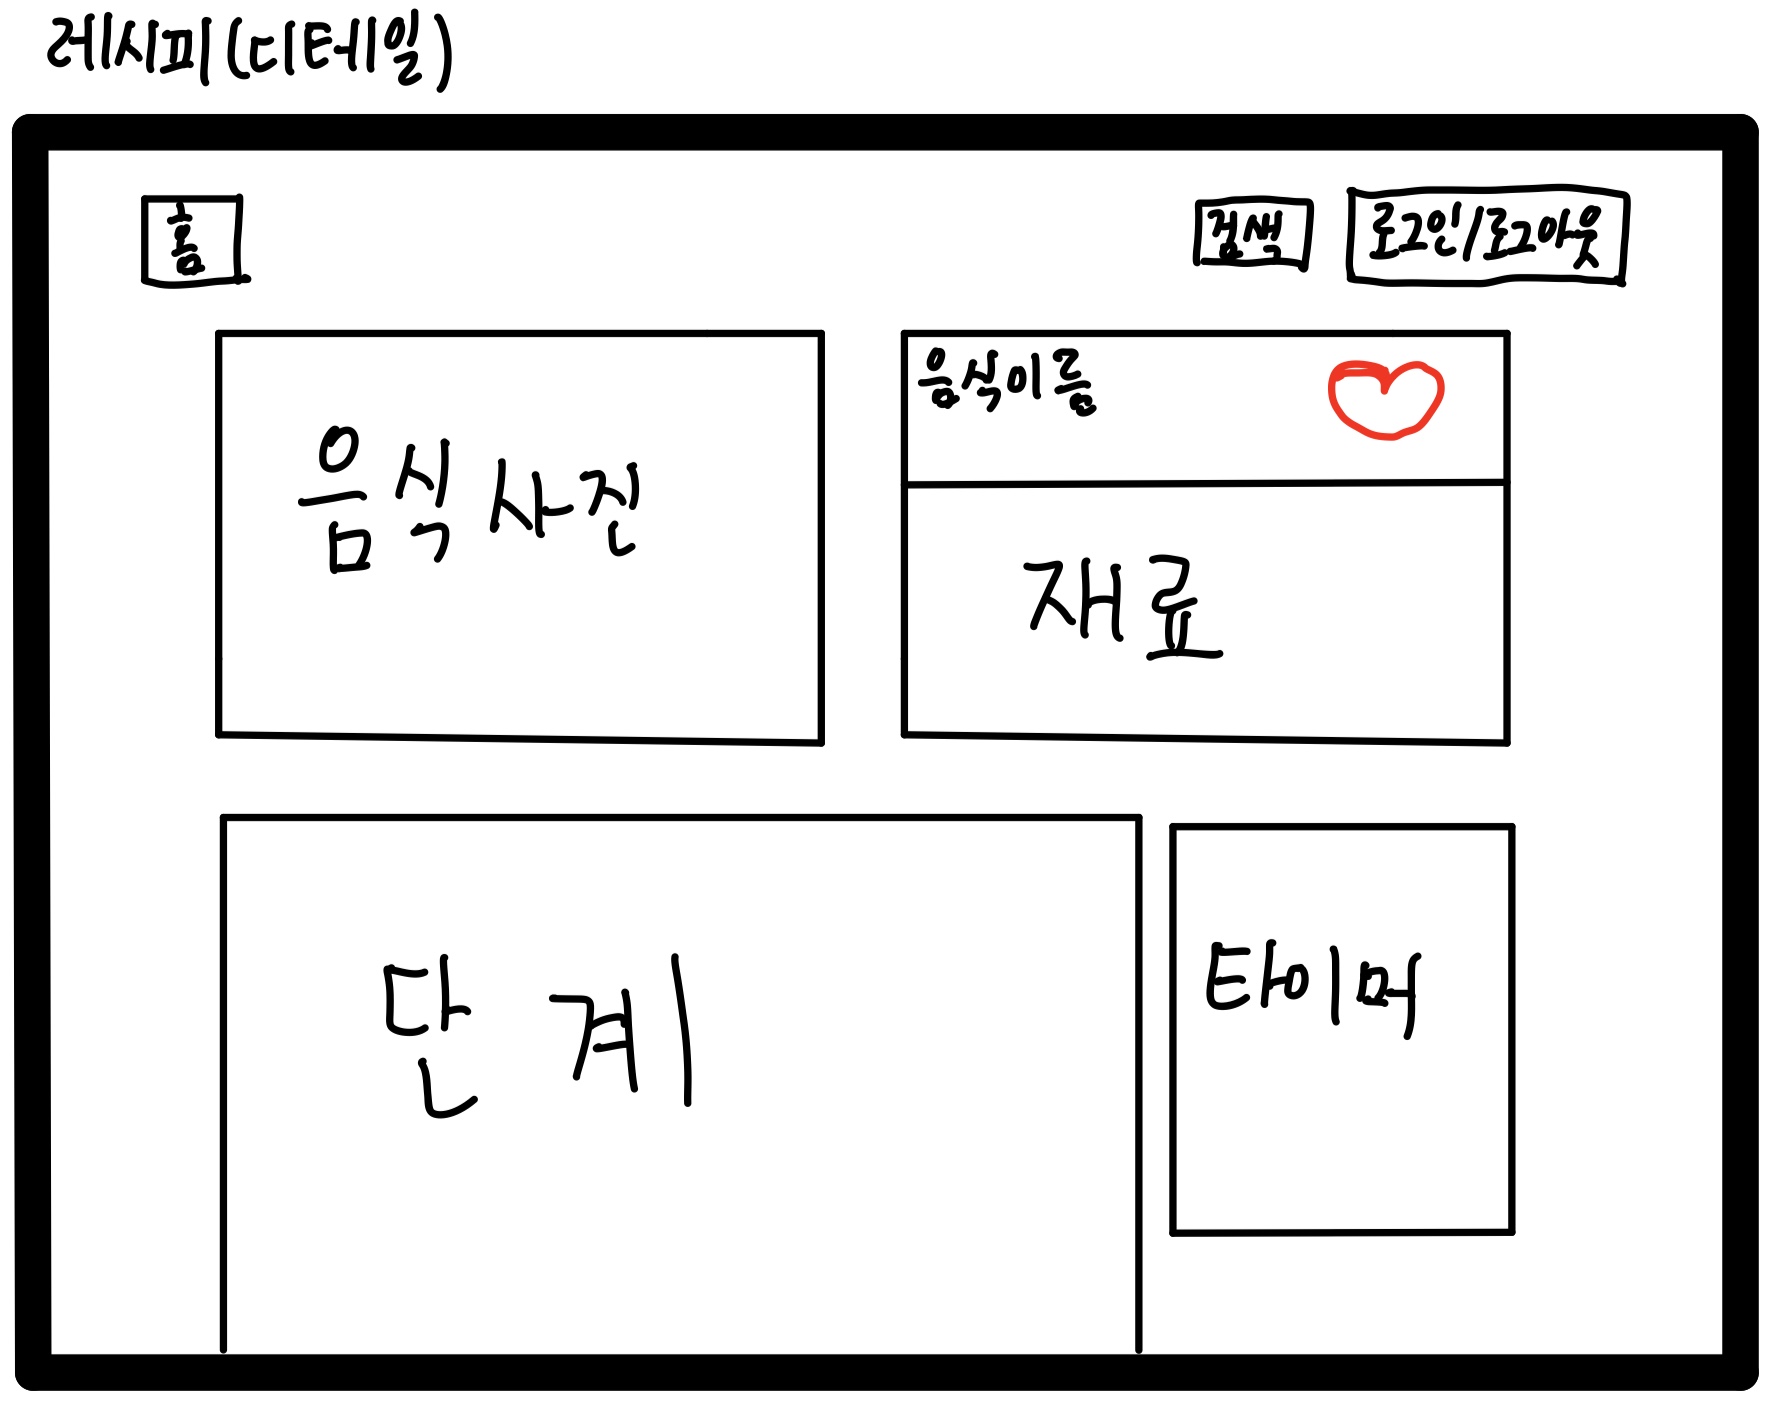 레시피(디테일)
홈
검색
로그인/로그아웃
음식이름
음식사진
재료
단계
타이머